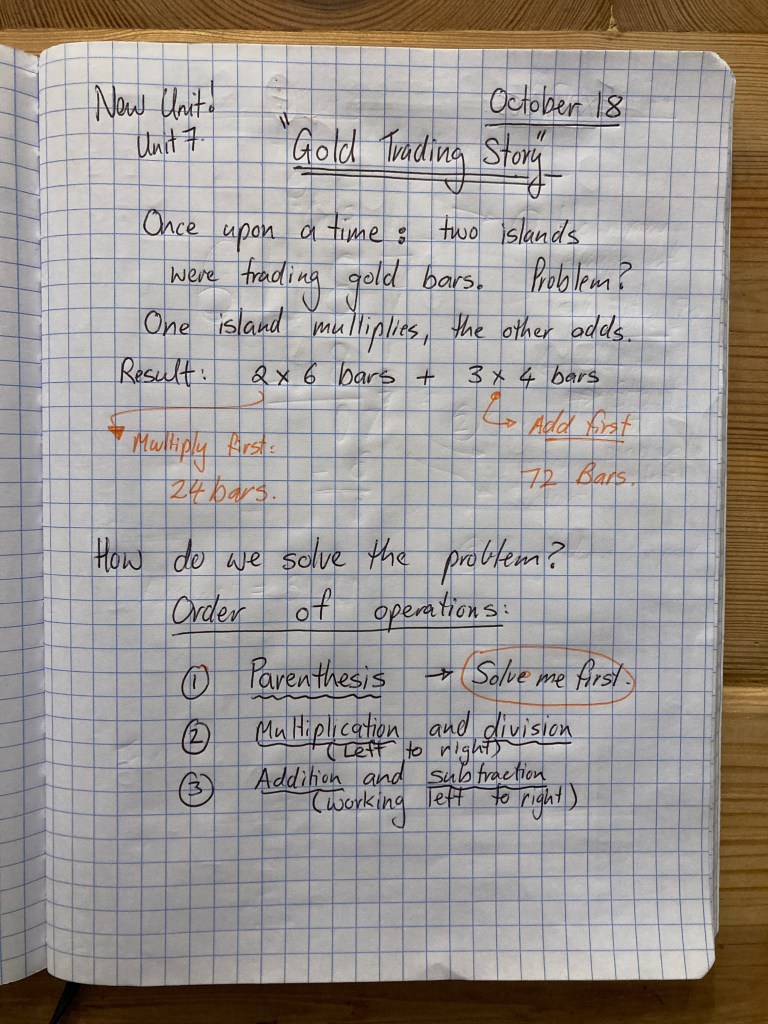 New Unit!
October 18
Unit 7.
"Gold Trading Story"
Once upon a time : two islands
were trading gold bars. Problem?
One island multiplies, the other adds.
Result: 2 x 6 bars + 3 x 4 bars
Multiply first:
24 bars.
Add first
72 Bars.
How do we solve the problem?
Order of operations:
① Parenthesis → Solve me first.
② Multiplication and division
(Left to right)
③ Addition and subtraction
(working left to right)